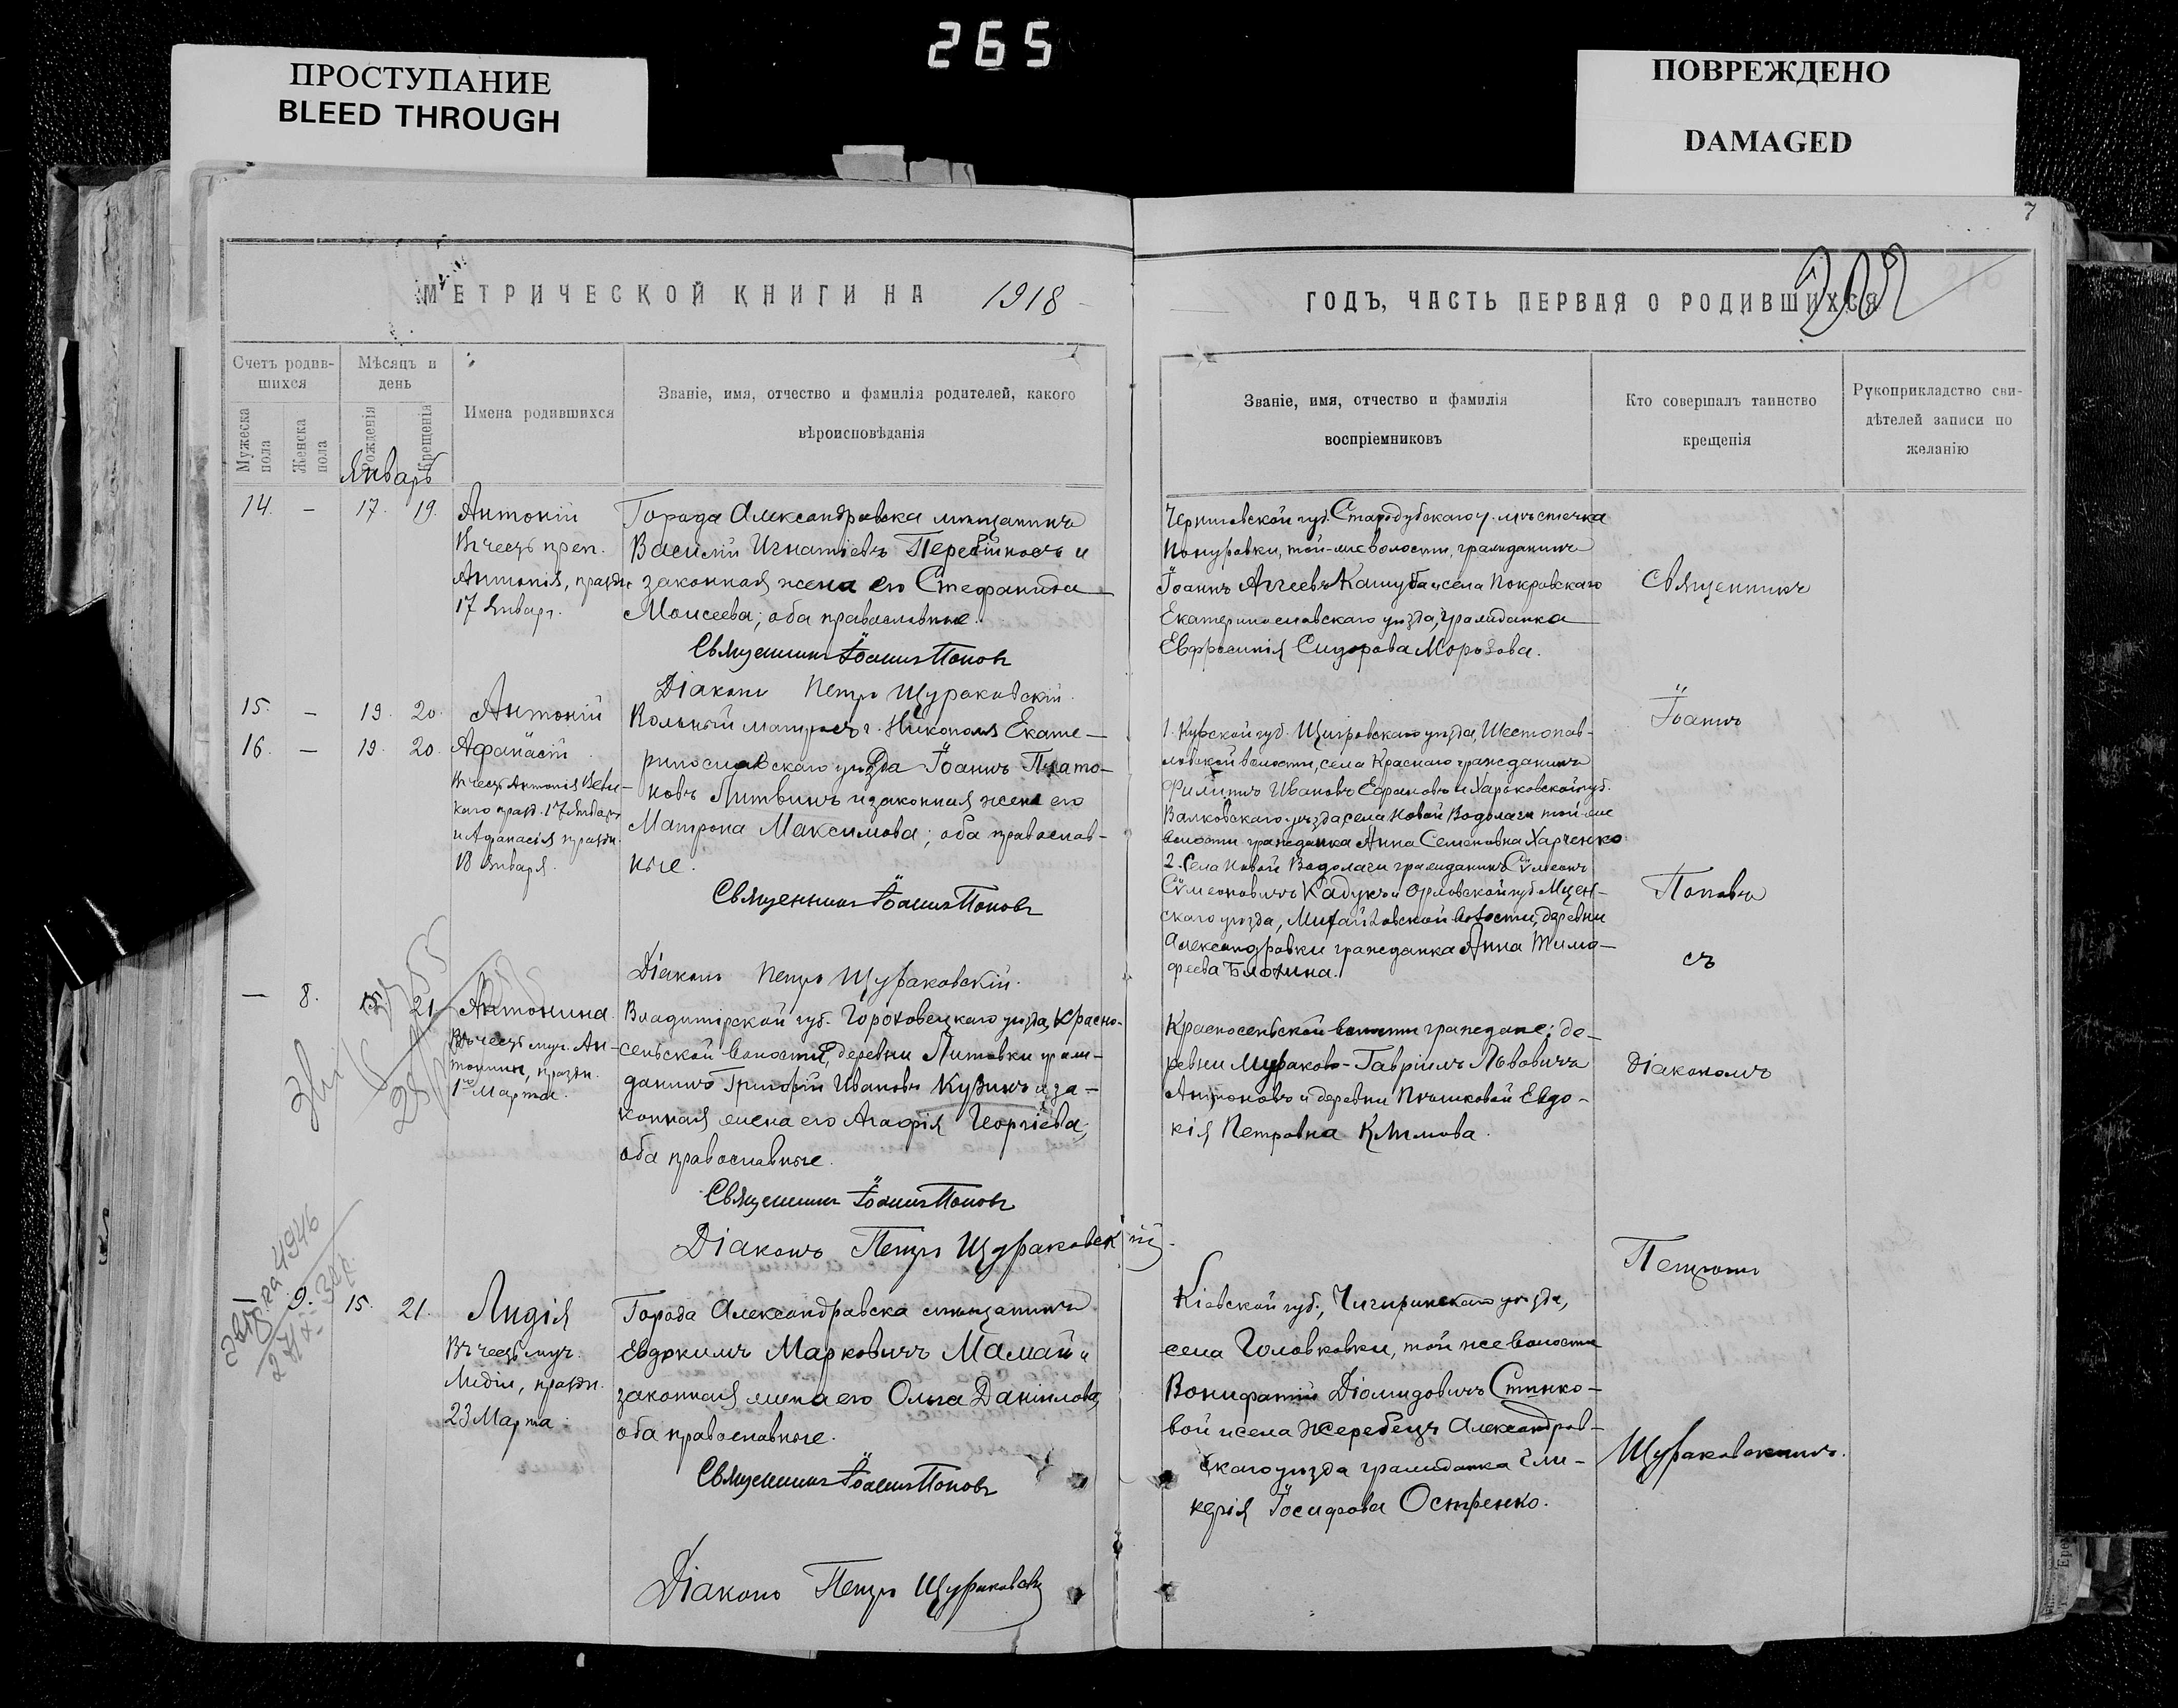 265
ПРОСТУПАНИЕ
BLEED THROUGH
ПОВРЕЖДЕНО
DAMAGED
7
МЕТРИЧЕСКОЙ КНИГИ НА 1918
Счетъ родив-
шихся
Мужеска пола
Женска пола
Мѣсяцъ и
день
Рожденія
Крещенія
Имена родившихся
Званіе, имя, отчество и фамилія родителей, какого
вѣроисповѣданія
Январь
14. — 17. 19.
Антоній
Въ честь преп.
Антонія, праздн.
17 Январ.
Города Александровска мѣщанинъ
Василій Игнатіевъ Перебійносъ и
законная жена его Стефанида
Моисеева; оба православные.
Священникъ Іоаннъ Поповъ
Діаконъ Петръ Щураковскій.
15. — 19. 20.
Антоній
16. — 19. 20.
Афанасій
Въ честь Антонія Вели-
каго празд. 17 Января
и Афанасія праздн.
18 Января.
Вольный матросъ г. Никополя Екате-
ринославскаго уѣзда Іоаннъ Плато-
новъ Литвинъ и законная жена его
Матрона Максимова; оба православ-
ные.
Священникъ Іоаннъ Поповъ
Діаконъ Петръ Щураковскій.
— 8. 21.
Антонина
Въ честь муч. Ан-
тонины, праздн.
1го Марта.
Владимірской губ. Гороховецкаго уѣзда, Красно-
сельской волости, деревни Литовки граж-
данинъ Григорій Ивановъ Кузинъ и за-
конная жена его Агафія Георгіева;
оба православные.
Священникъ Іоаннъ Поповъ
Діаконъ Петръ Щураковскій.
9. 15. 21.
Лидія
Въ честь муч.
Лидіи, праздн.
23 Марта.
Города Александровска мѣщанинъ
Евдокимъ Марковичъ Мамай и
законная жена его Ольга Даніилова,
оба православные.
Священникъ Іоаннъ Поповъ
Діаконъ Петръ Щураковскій
ГОДЪ, ЧАСТЬ ПЕРВАЯ О РОДИВШИХСЯ
Званіе, имя, отчество и фамилія
воспріемниковъ
Кто совершалъ таинство
крещенія
Рукоприкладство сви-
дѣтелей записи по
желанію
Черниговской губ. Стародубскаго у. мѣстечка
Понуровки, той-же волости, гражданинъ
Іоаннъ Аггеевъ Кашуба и села Покровскаго
Екатеринославскаго уѣзда, гражданка
Евфросинія Сидорова Морозова.
1. Курской губ. Щигровскаго уѣзда,
волости, села Краснаго гражданинъ
Филиппъ Ивановъ и Харьковской губ.
Валковскаго уѣзда, села Новой Водолаги той-же
волости гражданка Анна Семеновна Харченко
2. Села Новой Водолаги гражданинъ Сѵмеонъ
Сѵмеоновичъ Кадукъ и Орловской губ. Мцен-
скаго уѣзда, Михайловской волости, деревни
Александровки гражданка Анна Тимо-
феева Блохина.
Красносельской волости граждане: де-
ревни Гавріилъ Львовичъ
Антоновъ и деревни Евдо-
кія Петровна Климова.
Кіевской губ., Чигиринскаго уѣзда,
села Головковки, той же волости
Вонифатій Діомидовичъ Стинко-
вой и села Жеребецъ Александров-
скаго уѣзда гражданка Гли-
керія Іосифова Остренко.
Священникъ
Іоаннъ
Поповъ
съ
діакономъ
Петромъ
Щураковскимъ.